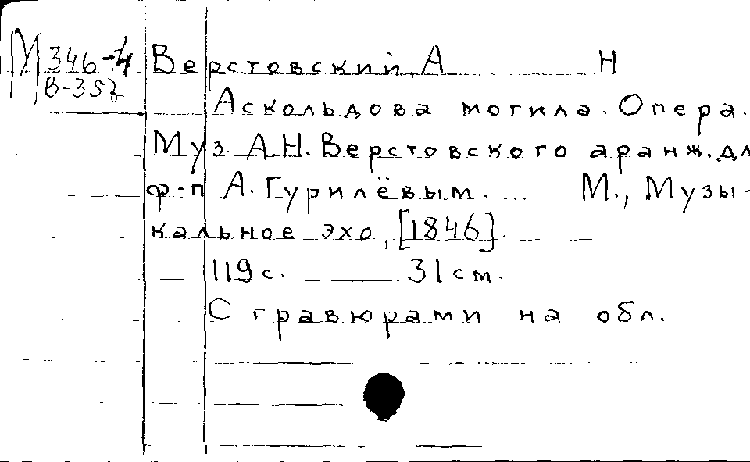 М 346-4 Верстовский А Н
В-357
Аскольдова могила. Опера.
Муз. А.Н. Верстовского аранж. дл
ф-п А. Гурилёвым. ... М., Музы-
кальное эхо, [1846].
119 с. 31 см.
С гравюрами на обл.